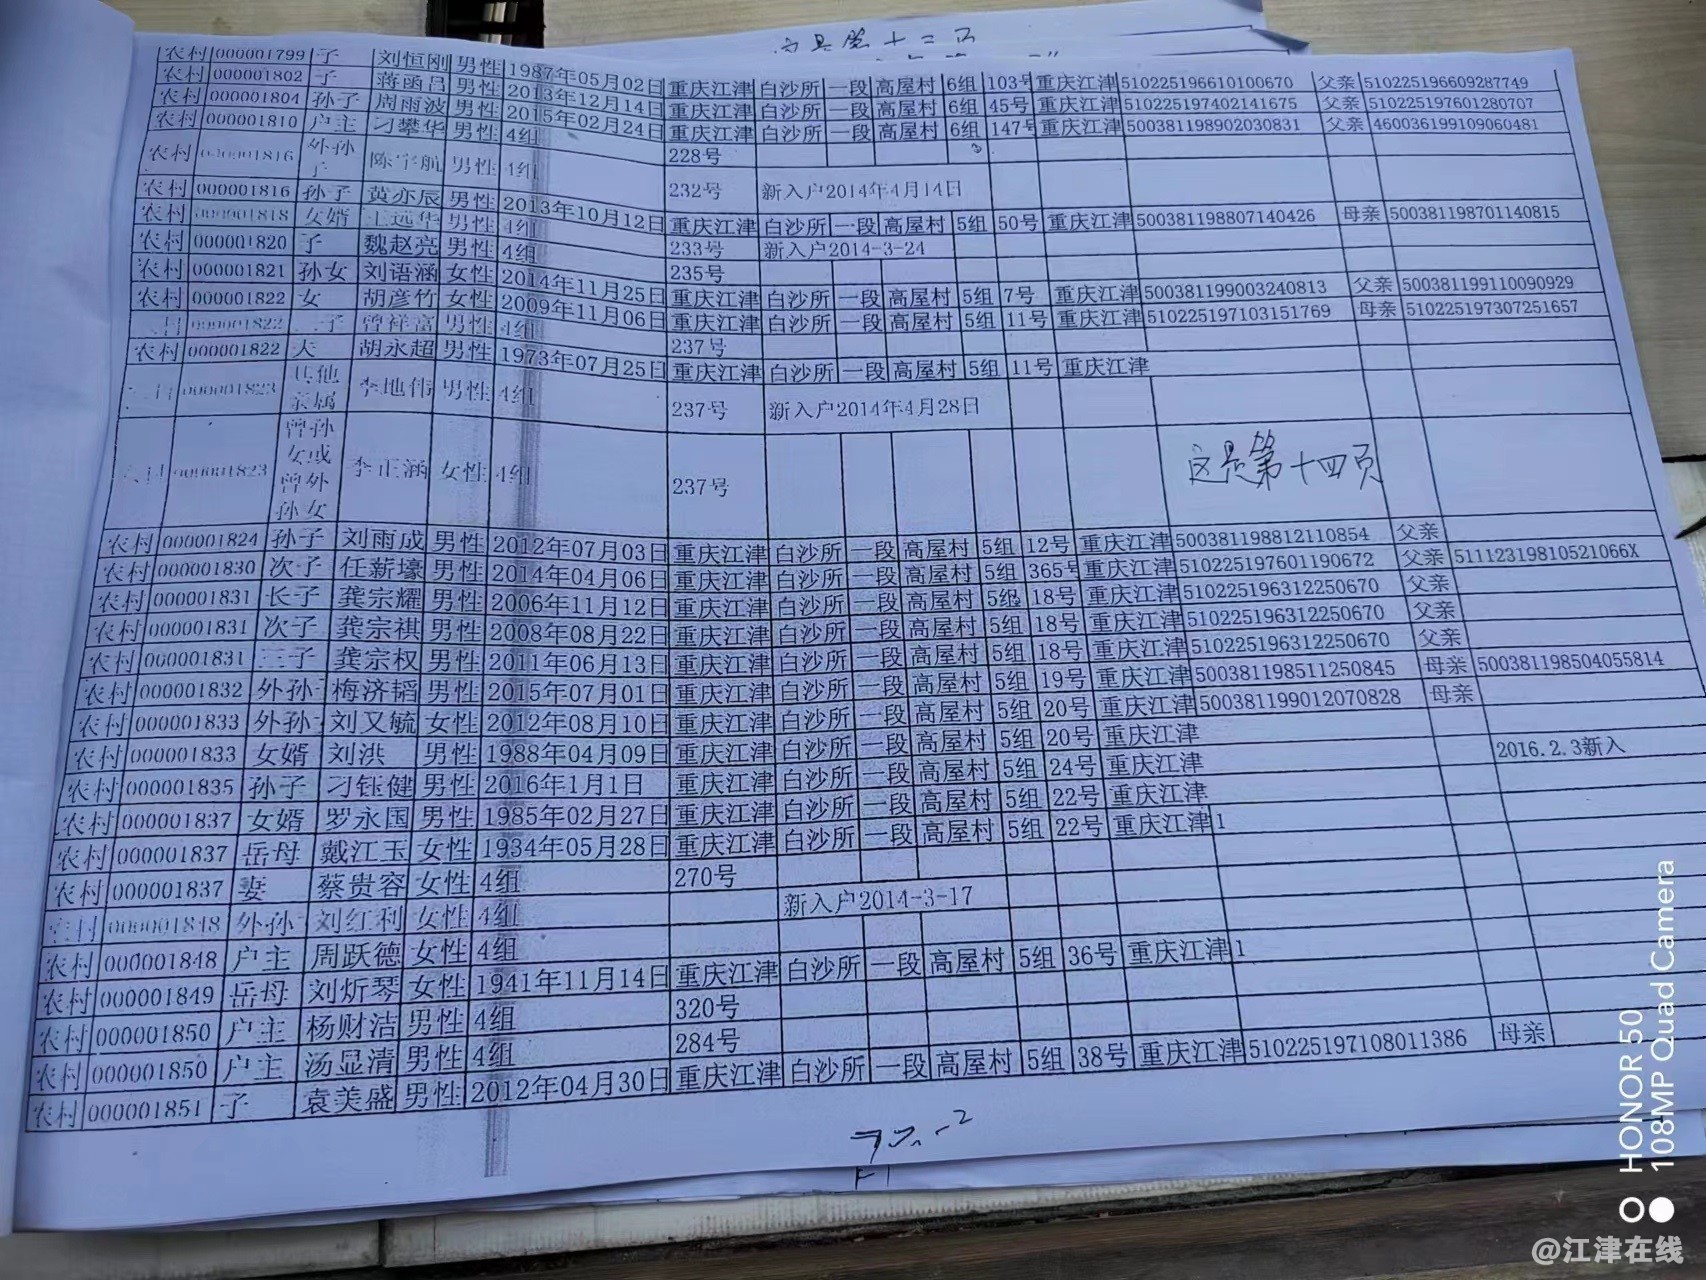 农村 000001799 子 刘恒刚 男性 1987年05月02日 重庆江津 白沙所 一段 高屋村 6组 103号 重庆江津 510225196610100670 父亲 510225196609287749
农村 000001802 子 蒋函吕 男性 2013年12月14日 重庆江津 白沙所 一段 高屋村 6组 45号 重庆江津 510225197402141675 父亲 510225197601280707
农村 000001804 孙子 周雨波 男性 2015年02月24日 重庆江津 白沙所 一段 高屋村 6组 147号 重庆江津 500381198902030831 父亲 460036199109060481
农村 000001810 户主 刁攀华 男性 4组 228号
农村 000001816 外孙子 陈宇航 男性 4组 232号 新入户2014年4月14日
农村 000001816 孙子 黄亦辰 男性 2013年10月12日 重庆江津 白沙所 一段 高屋村 5组 50号 重庆江津 500381198807140426 母亲 500381198701140815
农村 000001818 女婿 王远华 男性 4组 233号 新入户2014-3-24
农村 000001820 子 魏赵亮 男性 4组 235号
农村 000001821 孙女 刘语涵 女性 2014年11月25日 重庆江津 白沙所 一段 高屋村 5组 7号 重庆江津 500381199003240813 父亲 500381199110090929
农村 000001822 女 胡彦竹 女性 2009年11月06日 重庆江津 白沙所 一段 高屋村 5组 11号 重庆江津 510225197103151769 母亲 510225197307251657
000001822 二子 曾祥富 男性 4组 237号
农村 000001822 夫 胡永超 男性 1973年07月25日 重庆江津 白沙所 一段 高屋村 5组 11号 重庆江津
000001823 其他亲属 李地伟 男性 4组 237号 新入户2014年4月28日
000001823 曾孙女或曾外孙女 李正涵 女性 4组 237号
这是第十四页
农村 000001824 孙子 刘雨成 男性 2012年07月03日 重庆江津 白沙所 一段 高屋村 5组 12号 重庆江津 500381198812110854 父亲
农村 000001830 次子 任薪壕 男性 2014年04月06日 重庆江津 白沙所 一段 高屋村 5组 365号 重庆江津 510225197601190672 父亲 51112319810521066X
农村 000001831 长子 龚宗耀 男性 2006年11月12日 重庆江津 白沙所 一段 高屋村 5组 18号 重庆江津 510225196312250670 父亲
农村 000001831 次子 龚宗祺 男性 2008年08月22日 重庆江津 白沙所 一段 高屋村 5组 18号 重庆江津 510225196312250670 父亲
农村 000001831 三子 龚宗权 男性 2011年06月13日 重庆江津 白沙所 一段 高屋村 5组 18号 重庆江津 510225196312250670 父亲
农村 000001832 外孙 梅济韬 男性 2015年07月01日 重庆江津 白沙所 一段 高屋村 5组 19号 重庆江津 500381198511250845 母亲 500381198504055814
农村 000001833 外孙 刘又毓 女性 2012年08月10日 重庆江津 白沙所 一段 高屋村 5组 20号 重庆江津 500381199012070828 母亲
农村 000001833 女婿 刘洪 男性 1988年04月09日 重庆江津 白沙所 一段 高屋村 5组 20号 重庆江津
农村 000001835 孙子 刁钰健 男性 2016年1月1日 重庆江津 白沙所 一段 高屋村 5组 24号 重庆江津 2016.2.3新入
农村 000001837 女婿 罗永国 男性 1985年02月27日 重庆江津 白沙所 一段 高屋村 5组 22号 重庆江津
农村 000001837 岳母 戴江玉 女性 1934年05月28日 重庆江津 白沙所 一段 高屋村 5组 22号 重庆江津 1
农村 000001837 妻 蔡贵容 女性 4组 270号
农村 000001848 外孙 刘红利 女性 4组 新入户2014-3-17
农村 000001848 户主 周跃德 女性 4组
农村 000001849 岳母 刘炘琴 女性 1941年11月14日 重庆江津 白沙所 一段 高屋村 5组 36号 重庆江津 1
农村 000001850 户主 杨财洁 男性 4组 320号
农村 000001850 户主 汤显清 男性 4组 284号
农村 000001851 子 袁美盛 男性 2012年04月30日 重庆江津 白沙所 一段 高屋村 5组 38号 重庆江津 510225197108011386 母亲
HONOR 50
108MP Quad Camera
@江津在线